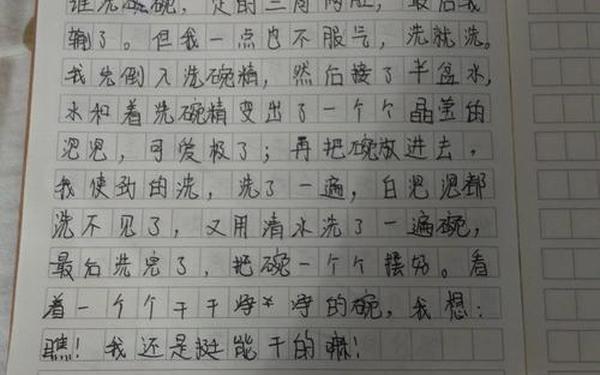 谁洗碗,定的三局两胜,最后我
输了。但我一点也不服气,洗就洗。
我先倒入洗碗精,然后接了半盆水,
水和着洗碗精变出了一个个晶莹的
泡泡,可爱极了;再把碗放进去,
我使劲的洗,洗了一遍,白泡泡都
洗不见了,又用清水洗了一遍碗,
最后洗完了,把碗一个个摆好。看
着一个个干干净净的碗,我想:
瞧!我还是挺能干的嘛!